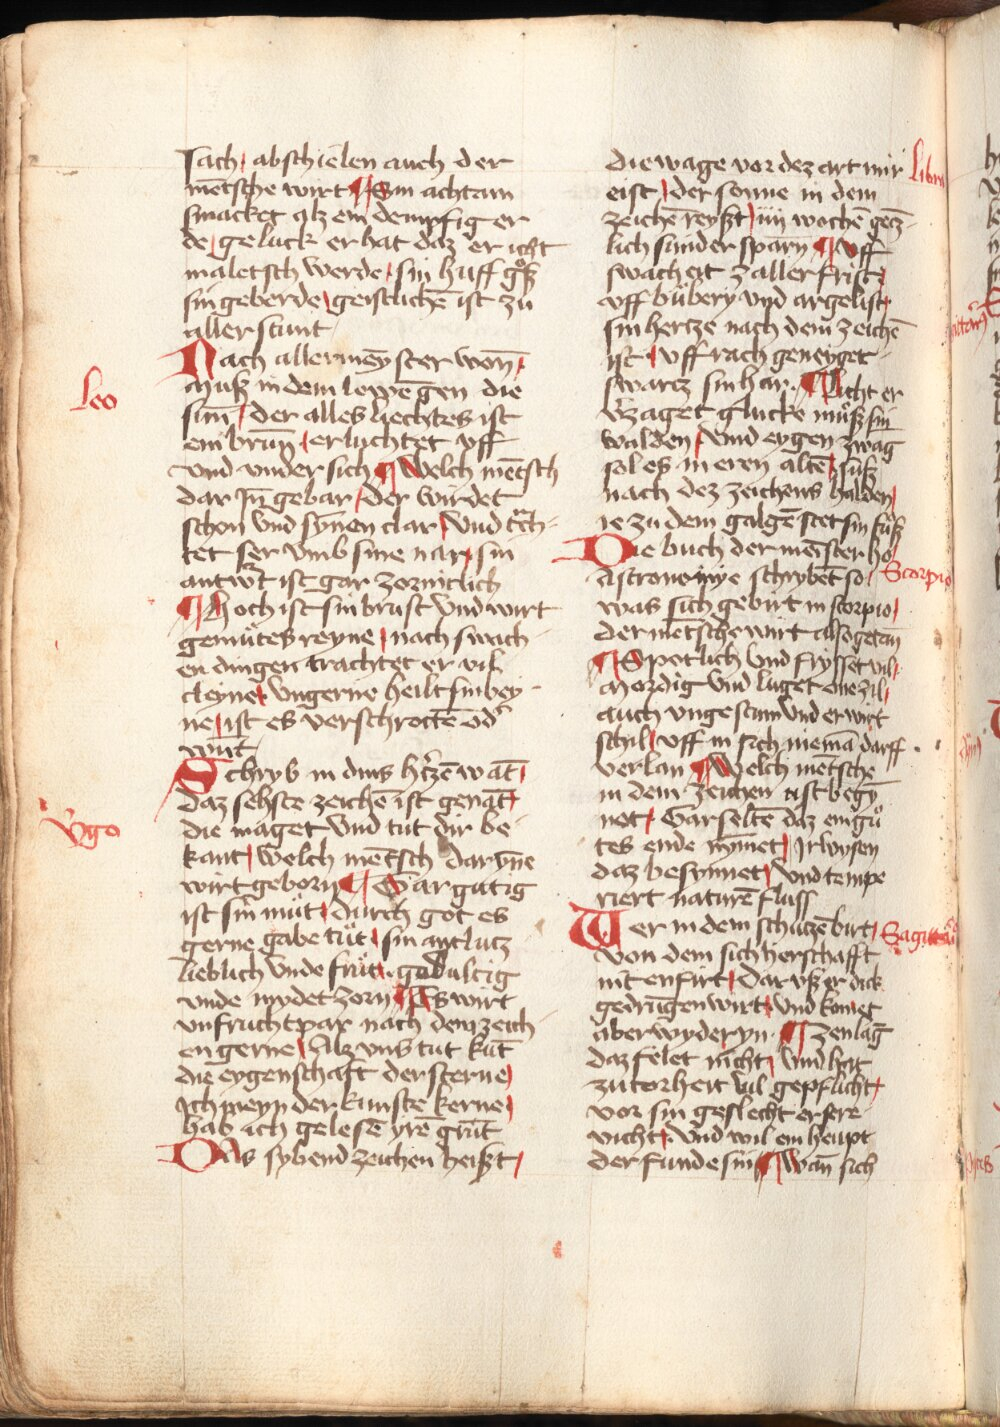 sach abschielen auch der
mētsche wirt Sin achtam
smacket alz ein dempfig er
de geluck er hat daz er icht
maletsch werde sin huff gͦß
sin geberde geistlichē ist zu
aller stunt
Nach aller meyster worn
Muß in dem lowen gen die
sun der alles liechtes ist
ein brun erluchtet vff
vnd vnder sich Welch mētsch
dar Jn gebar der wirdet
schon vnd synen clar vnd
tet ser vmb sine nar sin
antwrt ist gar zornicclich
Hoch ist sin brust vnd wirt
gemutes reyne nach swach
en dingen trachtet er vil
cleyne vngerne heilt sin bey
ne ist es verschrottē odˀ
wūt
Schryb in dins hˀtzē wāt
daz sehste zeichē ist genāt
die maget vnd tut dir be
kant welch mētsch daryñe
wirt geborn Gar gutig
ist sin mut durch got es
gerne gabe tut sin antlutz
lieblich vnde frut gedultig
vnde mydet zorn Es wirt
vnfruchtpar nach dem zeich
en gerne Alz vns tut kūt
die eygenschaft der sterne
Jch meyn der kunste kerne
hab ich gelesē yrē grūt
Das sybend zeichen heißt
die wage vor dez art mir
eist der sonne in dem
zeichē reyßt iiij wochē gētz
lich sunder sparn Vff
swacheit z aller frist
vff bubery vnd argelist
sin hertze nach dem zeichē
ist vff rach geneyget
swartz sin har Nicht er
vˀzaget glucke muß sin
walden vnd eygen zwag
sol es in eren altē sin
nach dez zeichens halden
ie zu dem galgē stet sin fuß
Die buch der meister ho
Astronomye schrybēt so
was sich gebirt in scorpio
der mētsche wirt also getan
Spotlich vnd frysset vil
Mordig vnd luget one zil
auch vngestum vnd er wirt
schil vff in sich niemā darff
verlan Welch mētsche
in dem zeichen ist begȳ
net Gar seltē daz ein gu
tes ende nymet Jr wysen
daz besynnet vnd tempe
riert naturē fluss
Wer in dem schutzē birt
von dem sich herschafft
nit enfirt dar vß er dick
gedrungen wirt vnd komet
aber wyder yn Zenlāg
daz felet nicht vnd hat
zu torheit vil gepflicht
vor sin geslecht er sere
vicht vnd wil ein heupt
der funde sin Wan sich
Leo
Vˀgo
Libra
Scorpio